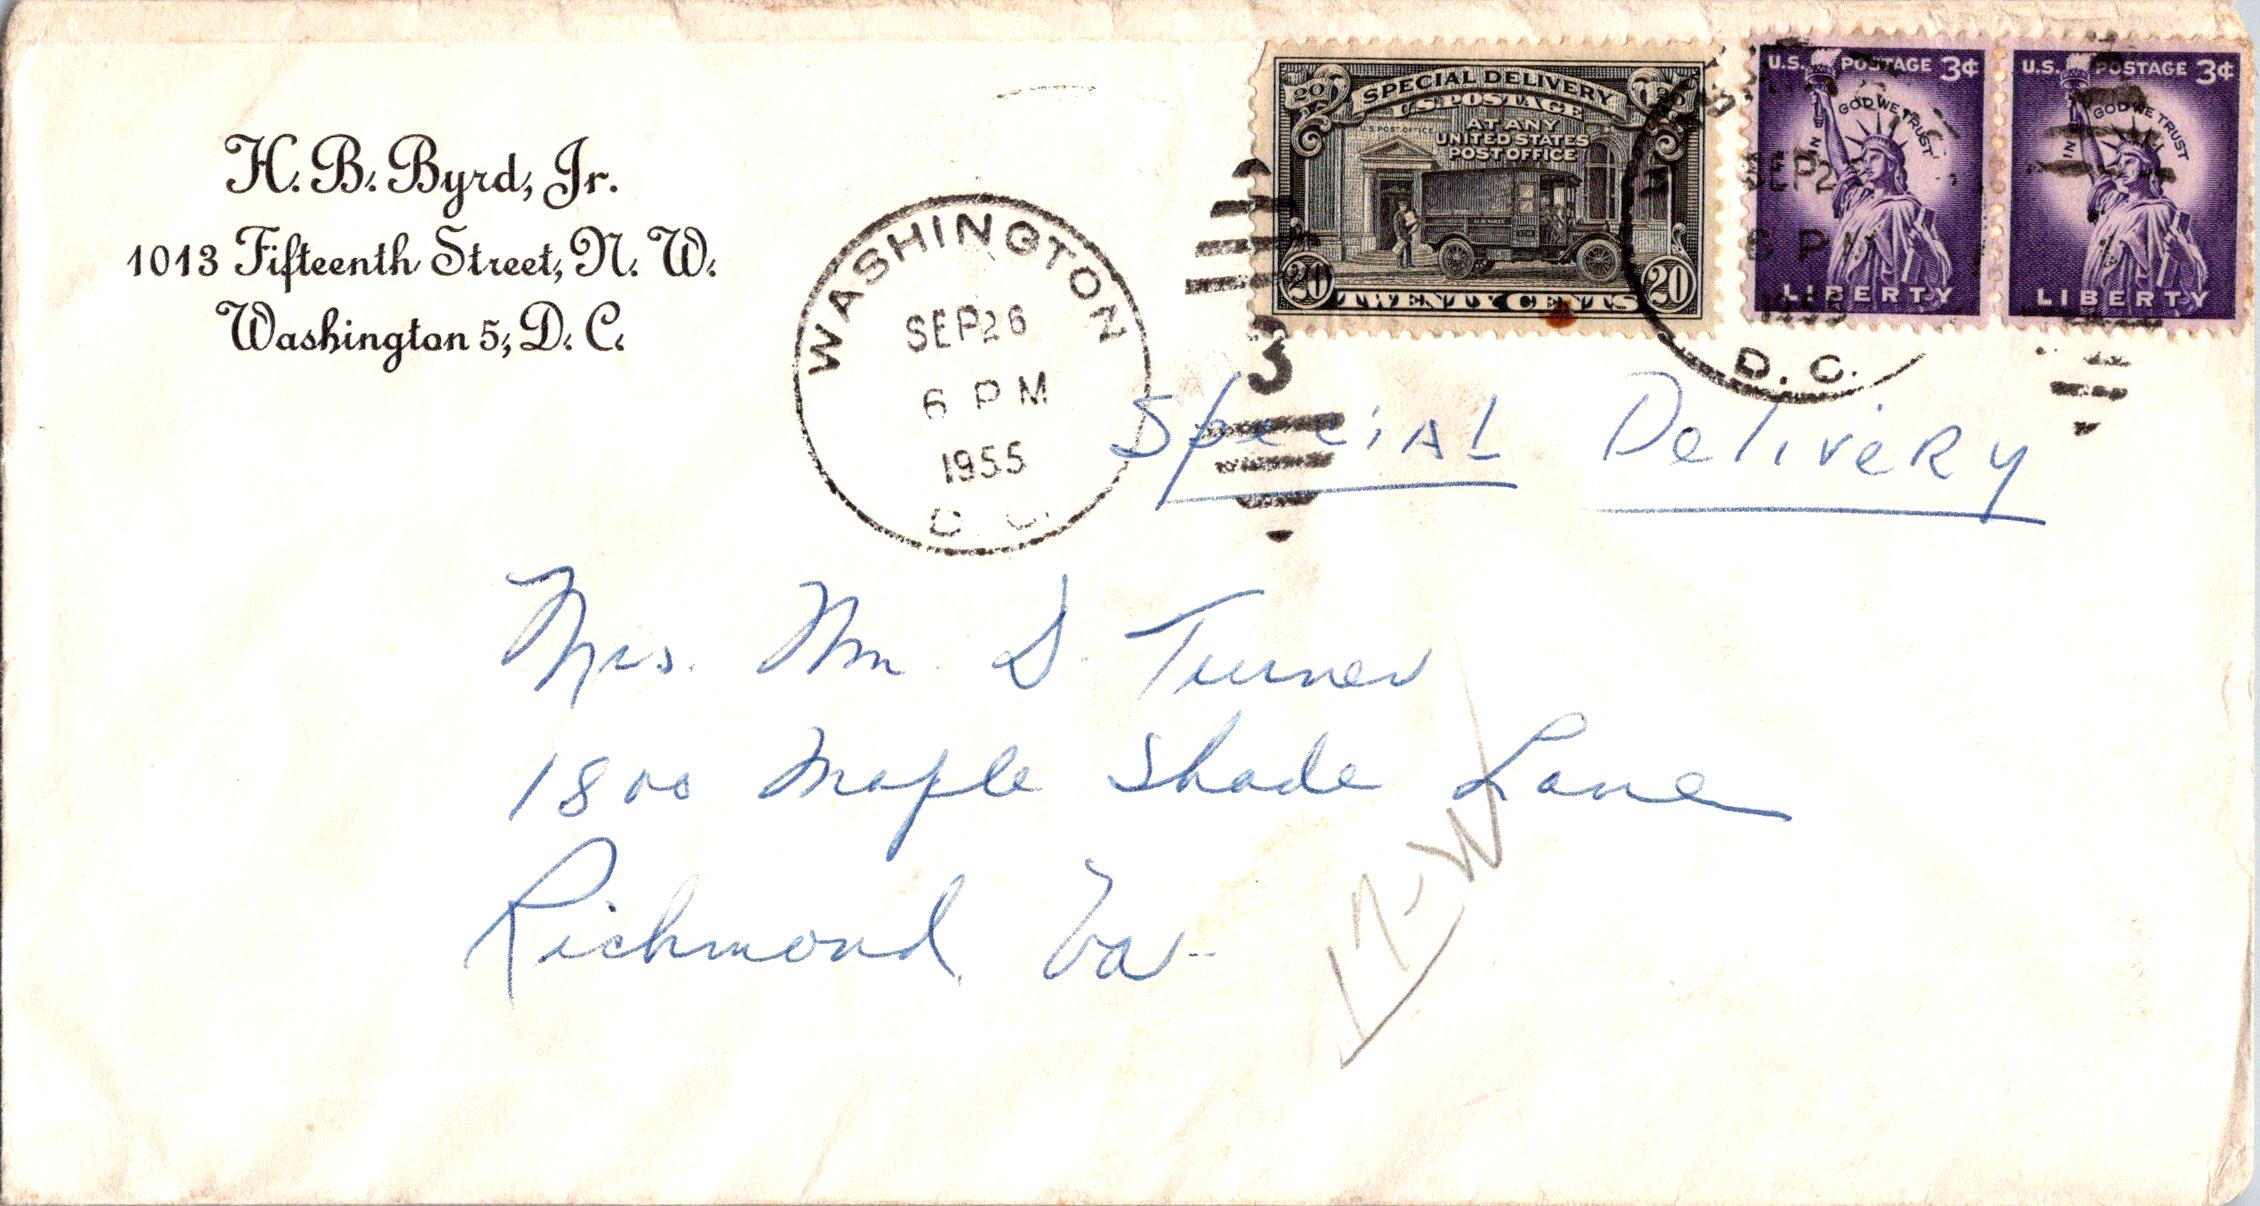 H. B. Byrd, Jr.
1013 Fifteenth Street, N. W.
Washington 5, D. C.
WASHINGTON
SEP 26
6 PM
1955
D. C.
3
20 SPECIAL DELIVERY 20
U.S. POSTAGE
U.S. POST OFFICE
AT ANY
UNITED STATES
POST OFFICE
20 TWENTY CENTS 20
U.S. POSTAGE 3¢
IN GOD WE TRUST
LIBERTY
U.S. POSTAGE 3¢
IN GOD WE TRUST
LIBERTY
SEP 26
6 PM
1955
D. C.
Special Delivery
Mrs. Wm. D. Turner
1800 Maple Shade Lane
Richmond, Va.